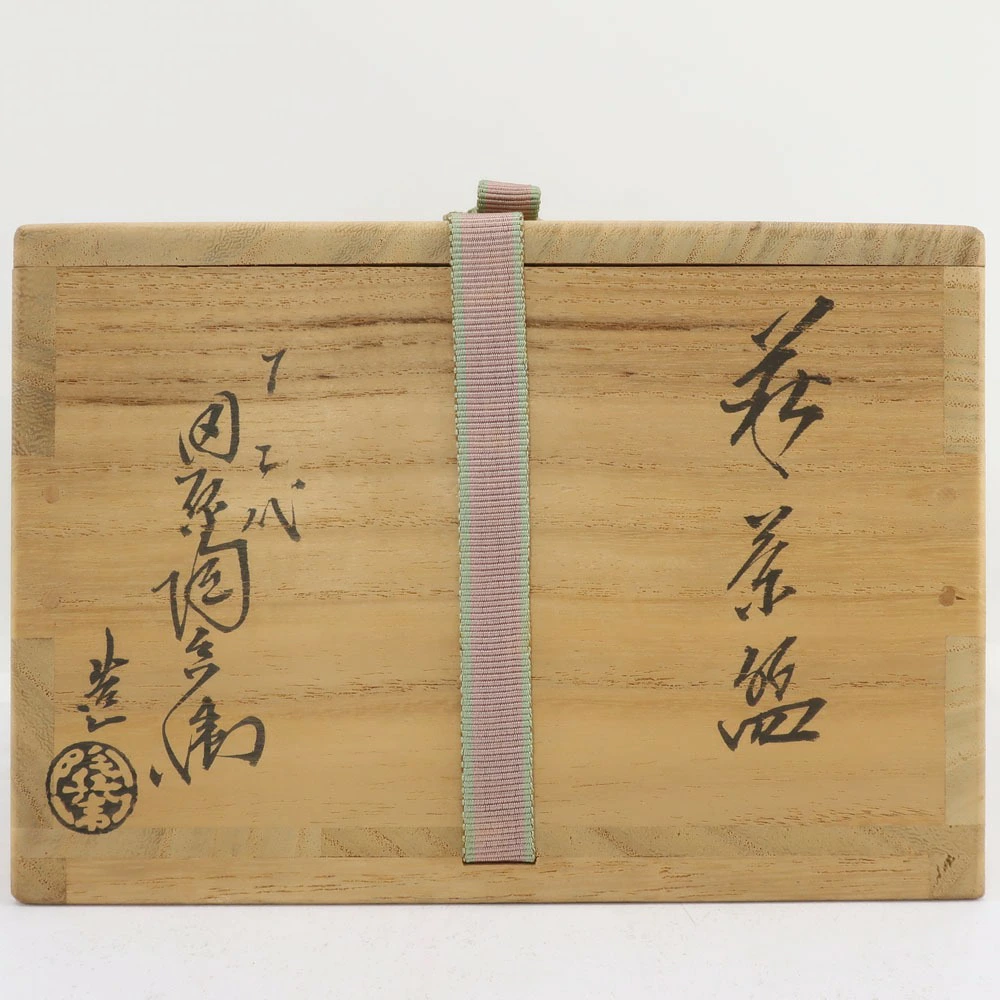 萩茶盌
十二代
田原陶兵衛
造